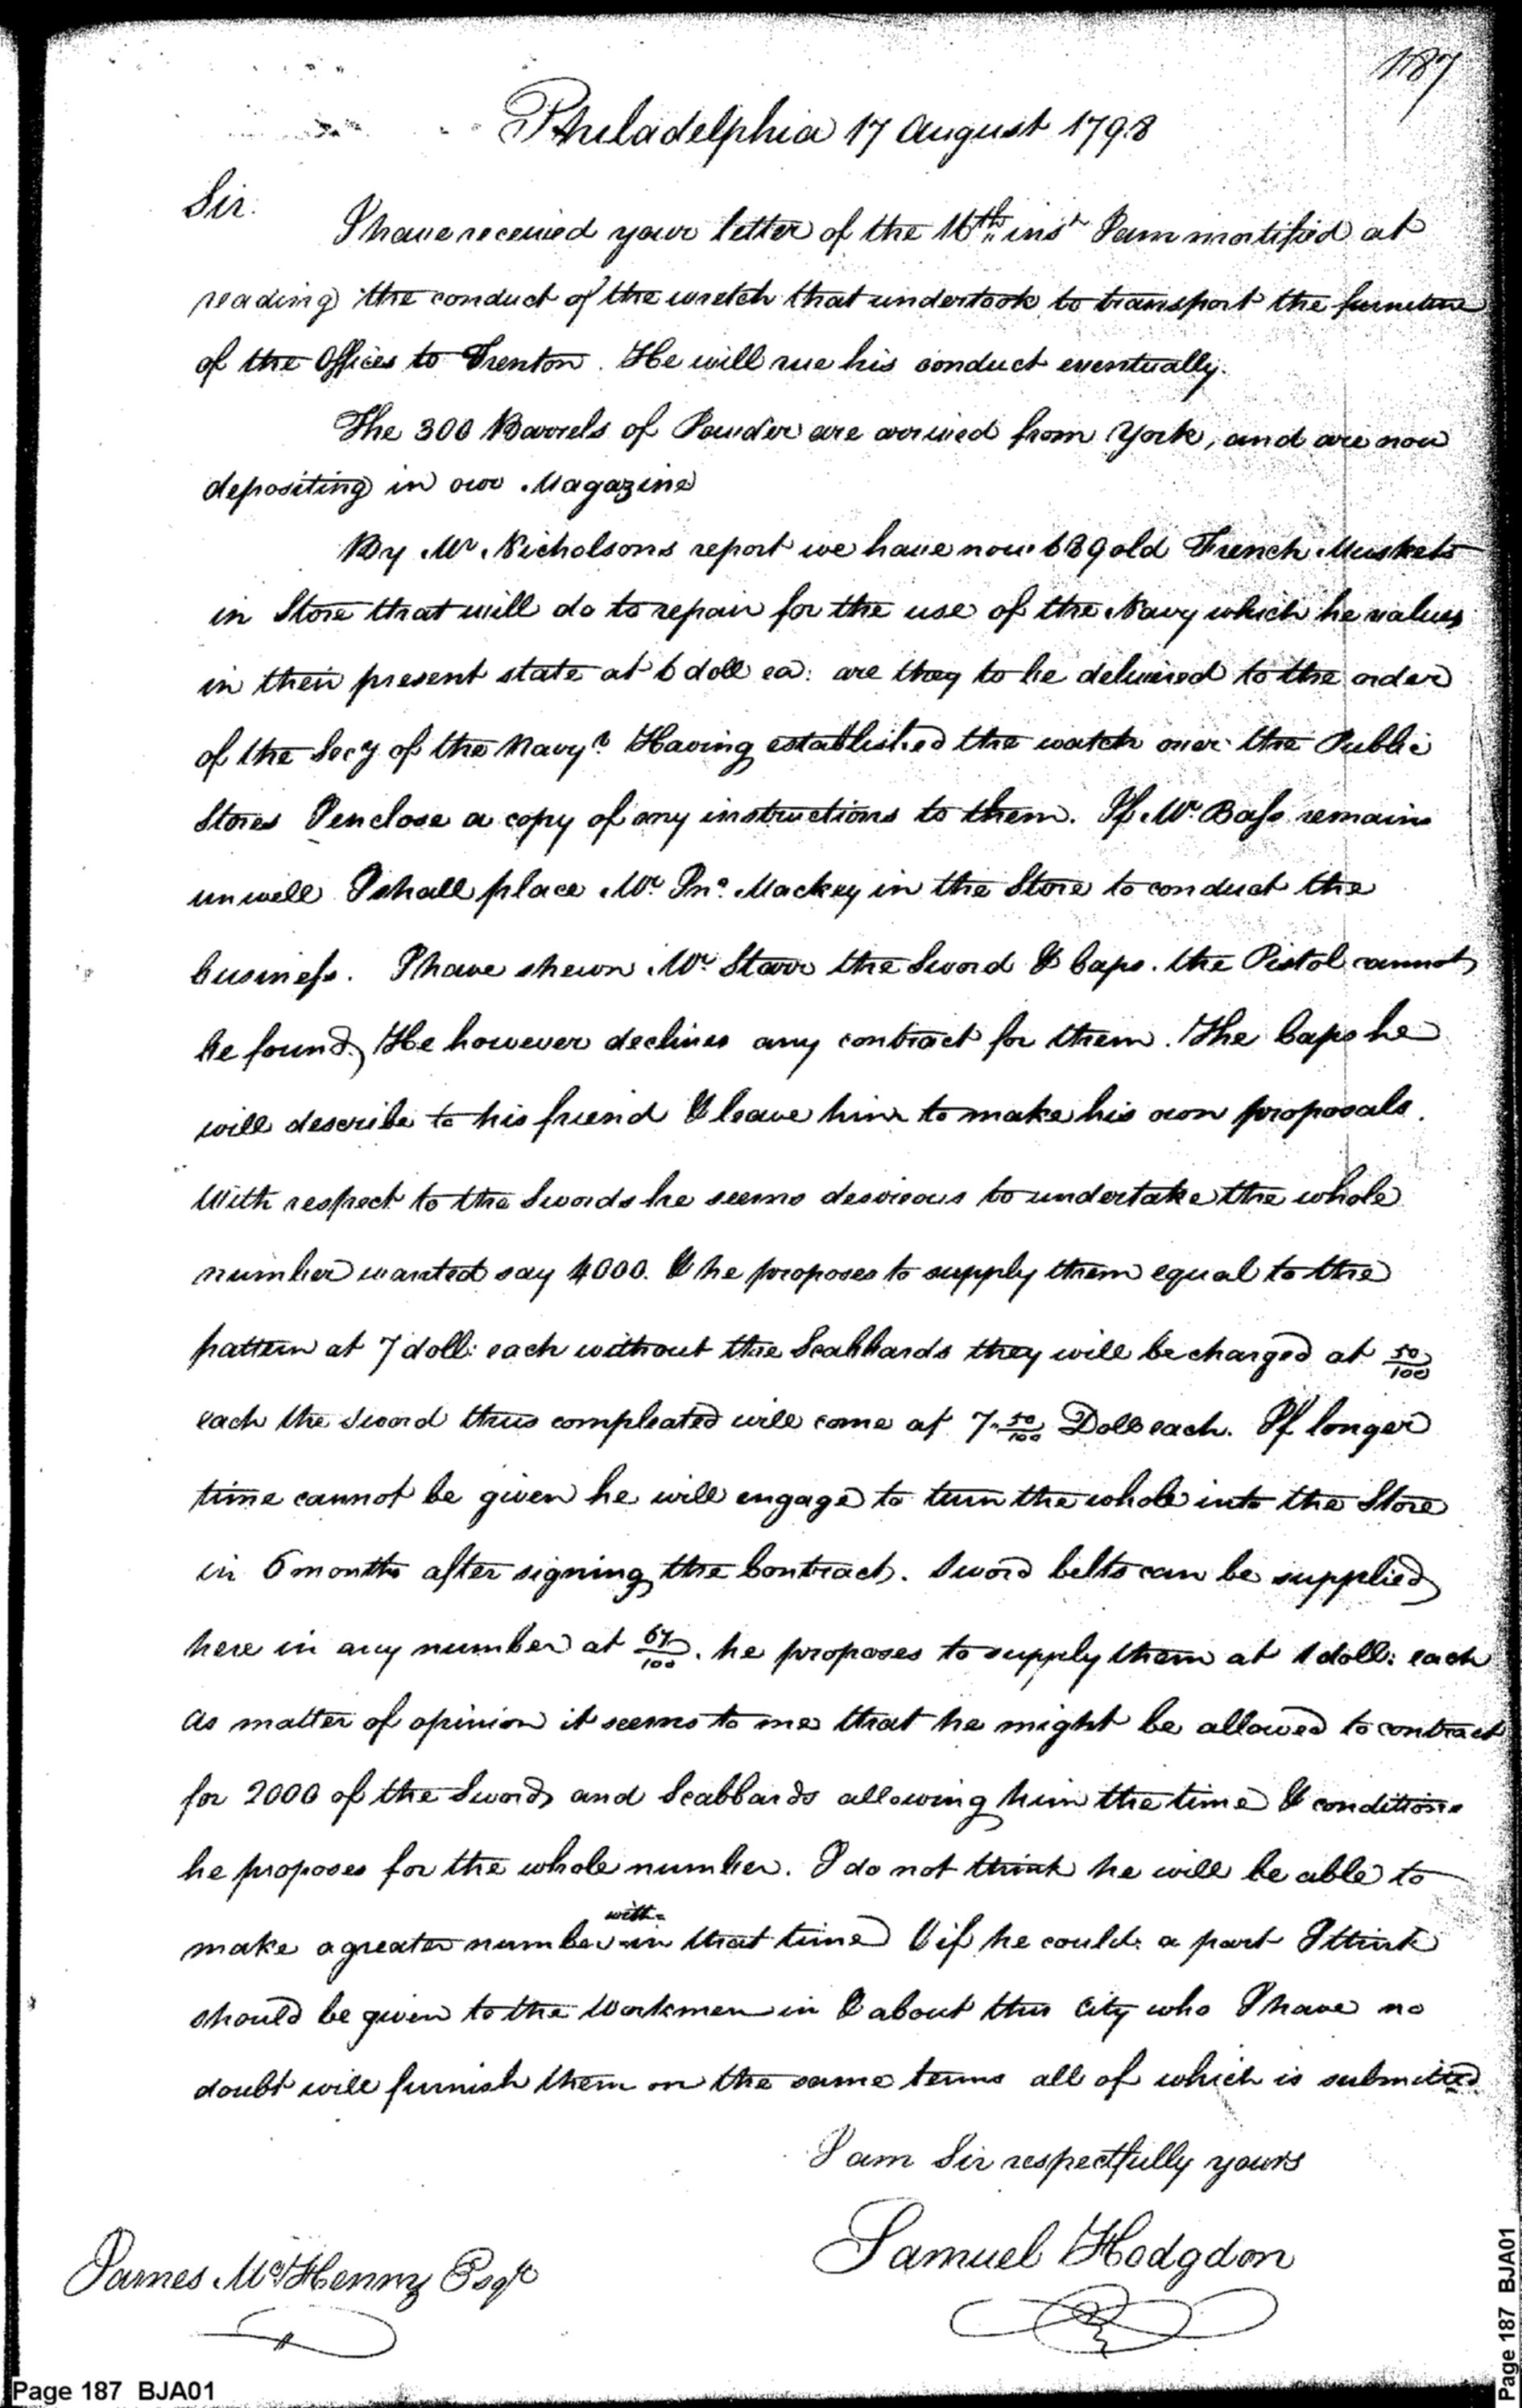 187
Philadelphia 17 August 1798
Sir.
I have received your letter of the 16th inst I am mortified at
reading the conduct of the wretch that undertook to transport the furniture
of the Offices to Trenton. He will rue his conduct eventually.
The 300 Barrels of Powder are arrived from York, and are now
depositing in our Magazine
By Mr Nicholsons report we have now 639 old French Muskets
in Store that will do to repair for the use of the Navy which he values
in their present state at 6 doll ea: are they to be delivered to the order
of the Secy of the Navy? Having established the watch over the Public
Stores I enclose a copy of my instructions to them. If Mr. Bass remains
unwell I shall place Mr Jno. Mackey in the Store to conduct the
business. I have shewn Mr Starr the Sword & Caps. the Pistol cannot
be found, He however declines any contract for them. The Caps he
will describe to his friend & leave him to make his own proposals.
With respect to the Swords he seems desireous to undertake the whole
number wanted say 4000. & he proposes to supply them equal to the
pattern at 7 doll: each without the Scabbards they will be charged at 50/100
each the sword thus compleated will come at 7.50/100 Dolls each. If longer
time cannot be given he will engage to turn the whole into the Store
in 6 months after signing the Contract. Sword belts can be supplied
here in any number at 67/100. he proposes to supply them at 1 doll: each
As matter of opinion it seems to me that he might be allowed to contract
for 2000 of the Swords and Scabbards allowing him the time & conditions
he proposes for the whole number. I do not think he will be able to
make a greater number with-in that time & if he could: a part I think
should be given to the Workmen in & about this City who I have no
doubt will furnish them on the same terms all of which is submitted
I am Sir respectfully yours
Samuel Hodgdon
James McHenry Esqr
Page 187 BJA01
Page 187 BJA01